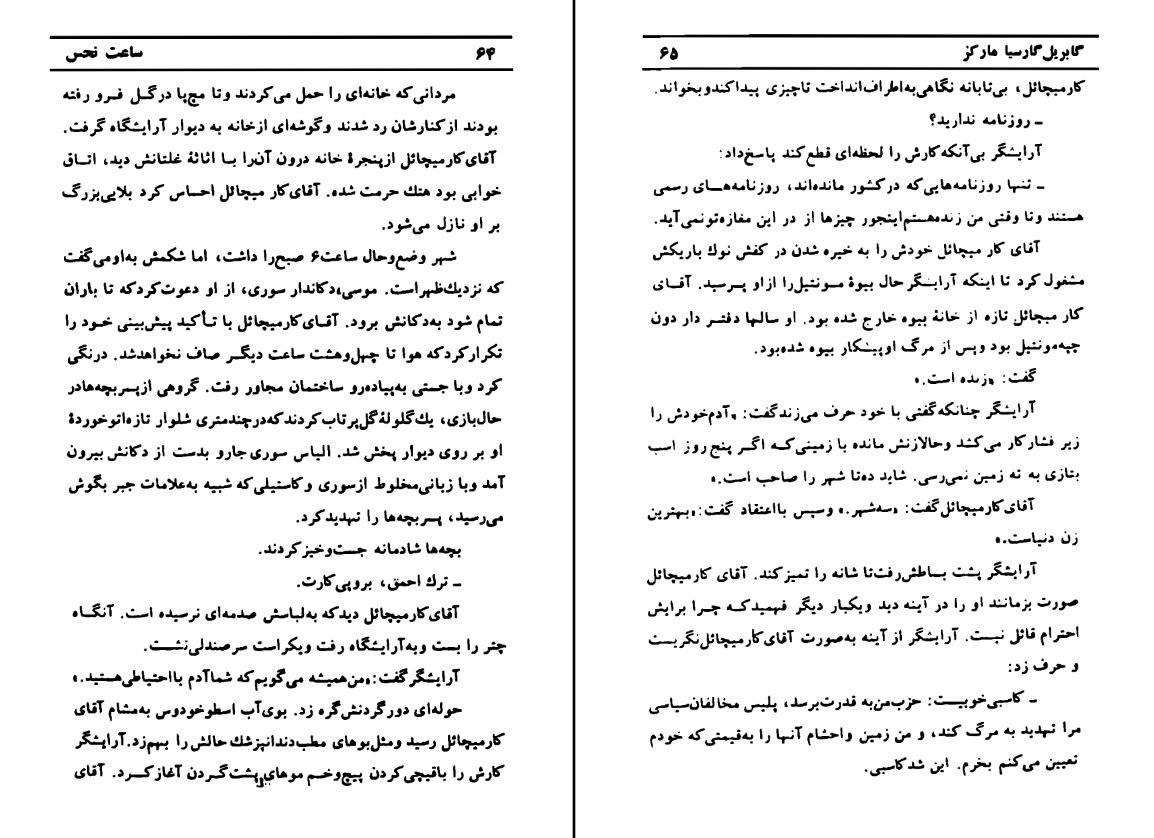 ساعت نحس ۶۴
مردانی‌که خانه‌ای را حمل می‌کردند وتا مچ‌پا درگـل فـرو رفته
بودند ازکنارشان رد شدند وگوشه‌ای ازخانه به دیوار آرایشگاه گرفت.
آقای‌کارمیچائل ازپنجرهٔ خانه درون آن‌را بـا اثاثهٔ غلتانش دید، اتـاق
خوابی بود هتك حرمت شده. آقای‌کار میچائل احساس کرد بلایی‌بزرگ
بر او نازل می‌شود.
شهر وضع‌وحال ساعت۶ صبح‌را داشت، اما شکمش به‌اومی‌گفت
که نزدیك‌ظهراست. موسی‌دکاندار سوری، از او دعوت‌کردکه تا باران
تمام شود به‌دکانش برود. آقـای‌کارمیچائل با تـأکید پیش‌بینی خـود را
تکرارکردکه هوا تا چهل‌وهشت ساعت دیگـر صاف نخواهدشد. درنگی
کرد وبا جستی به‌پیاده‌رو ساختمان مجاور رفت. گروهی ازپسربچه‌هادر
حال‌بازی، یك‌گلولهٔ‌گل‌پرتاب‌کردندکه‌درچندمتری شلوار تازه‌اتوخوردهٔ
او بر روی دیوار پخش شد. الیاس سوری‌جارو بدست از دکانش بیرون
آمد وبا زبانی‌مخلوط ازسوری وکاستیلی‌که شبیه به‌علامات جبر بگوش
می‌رسید، پسربچه‌ها را تهدیدکرد.
بچه‌ها شادمانه جست‌وخیزکردند.
ـ ترك احمق، بروپی‌کارت.
آقای‌کارمیچائل دیدکه به‌لباسش صدمه‌ای نرسیده است. آنگـاه
چتر را بست وبه‌آرایشگاه رفت ویکراست سرصندلی‌نشست.
آرایشگرگفت:«من‌همیشه می‌گویم‌که شماآدم بااحتیاطی‌هستید.»
حوله‌ای دورگردنش‌گره زد. بوی‌آب اسطوخودوس به‌مشام آقای
کارمیچائل رسید ومثل‌بوهای مطب‌دندانپزشك حالش را بهم‌زد.آرایشگر
کارش را باقیچی‌کردن پیچ‌وخـم موهای پشت‌گـردن آغازکـرد. آقای
گابریل‌گارسیا مارکز ۶۵
کارمیچائل، بی‌تابانه نگاهی‌به‌اطراف‌انداخت تاچیزی پیداکندوبخواند.
ـ روزنامه ندارید؟
آرایشگر بی‌آنکه‌کارش را لحظه‌ای قطع‌کند پاسخ‌داد:
ـ تنها روزنامه‌هایی‌که درکشور مانده‌اند، روزنامه‌هـای رسمی
هستند وتا وقتی من زنده‌هستم‌اینجور چیزها از در این مغازه‌تونمی‌آید.
آقای کار میچائل خودش را به خیره شدن در کفش نوك باریکش
مشغول‌کرد تا اینکه آرایشگر حال بیوهٔ مـونتیل‌را ازاو پـرسید. آقـای
کار میچائل تازه از خانهٔ بیوه خارج شده بود. او سالها دفتـر دار دون
چپه‌مونتیل بود وپس از مرگ اوپیشکار بیوه شده‌بود.
گفت: «زنده است.»
آرایشگر چنانکه‌گفتی با خود حرف می‌زندگفت: «آدم‌خودش را
زیر فشارکار می‌کشد وحالازنش مانده با زمینی‌کـه اگـر پنج روز اسب
بتازی به ته زمین نمی‌رسی. شاید ده‌تا شهر را صاحب است.»
آقای‌کارمیچائل‌گفت: «سه‌شهر.» وسپس بااعتقاد گفت:«بهترین
زن دنیاست.»
آرایشگر پشت بساطش‌رفت‌تا شانه را تمیزکند. آقای کارمیچائل
صورت بزمانند او را در آینه دید ویکبار دیگر فهمیدکـه چـرا برایش
احترام قائل نیست. آرایشگر از آینه به‌صورت آقای‌کارمیچائل‌نگریست
و حرف زد:
ـ کاسبی‌خوبیست: حزب‌من‌به قدرت‌برسد، پلیس مخالفان‌سیاسی
مرا تهدید به مرگ کند، و من زمین واحشام آنها را به‌قیمتی‌که خودم
تعیین می‌کنم بخرم. این شدکاسبی.